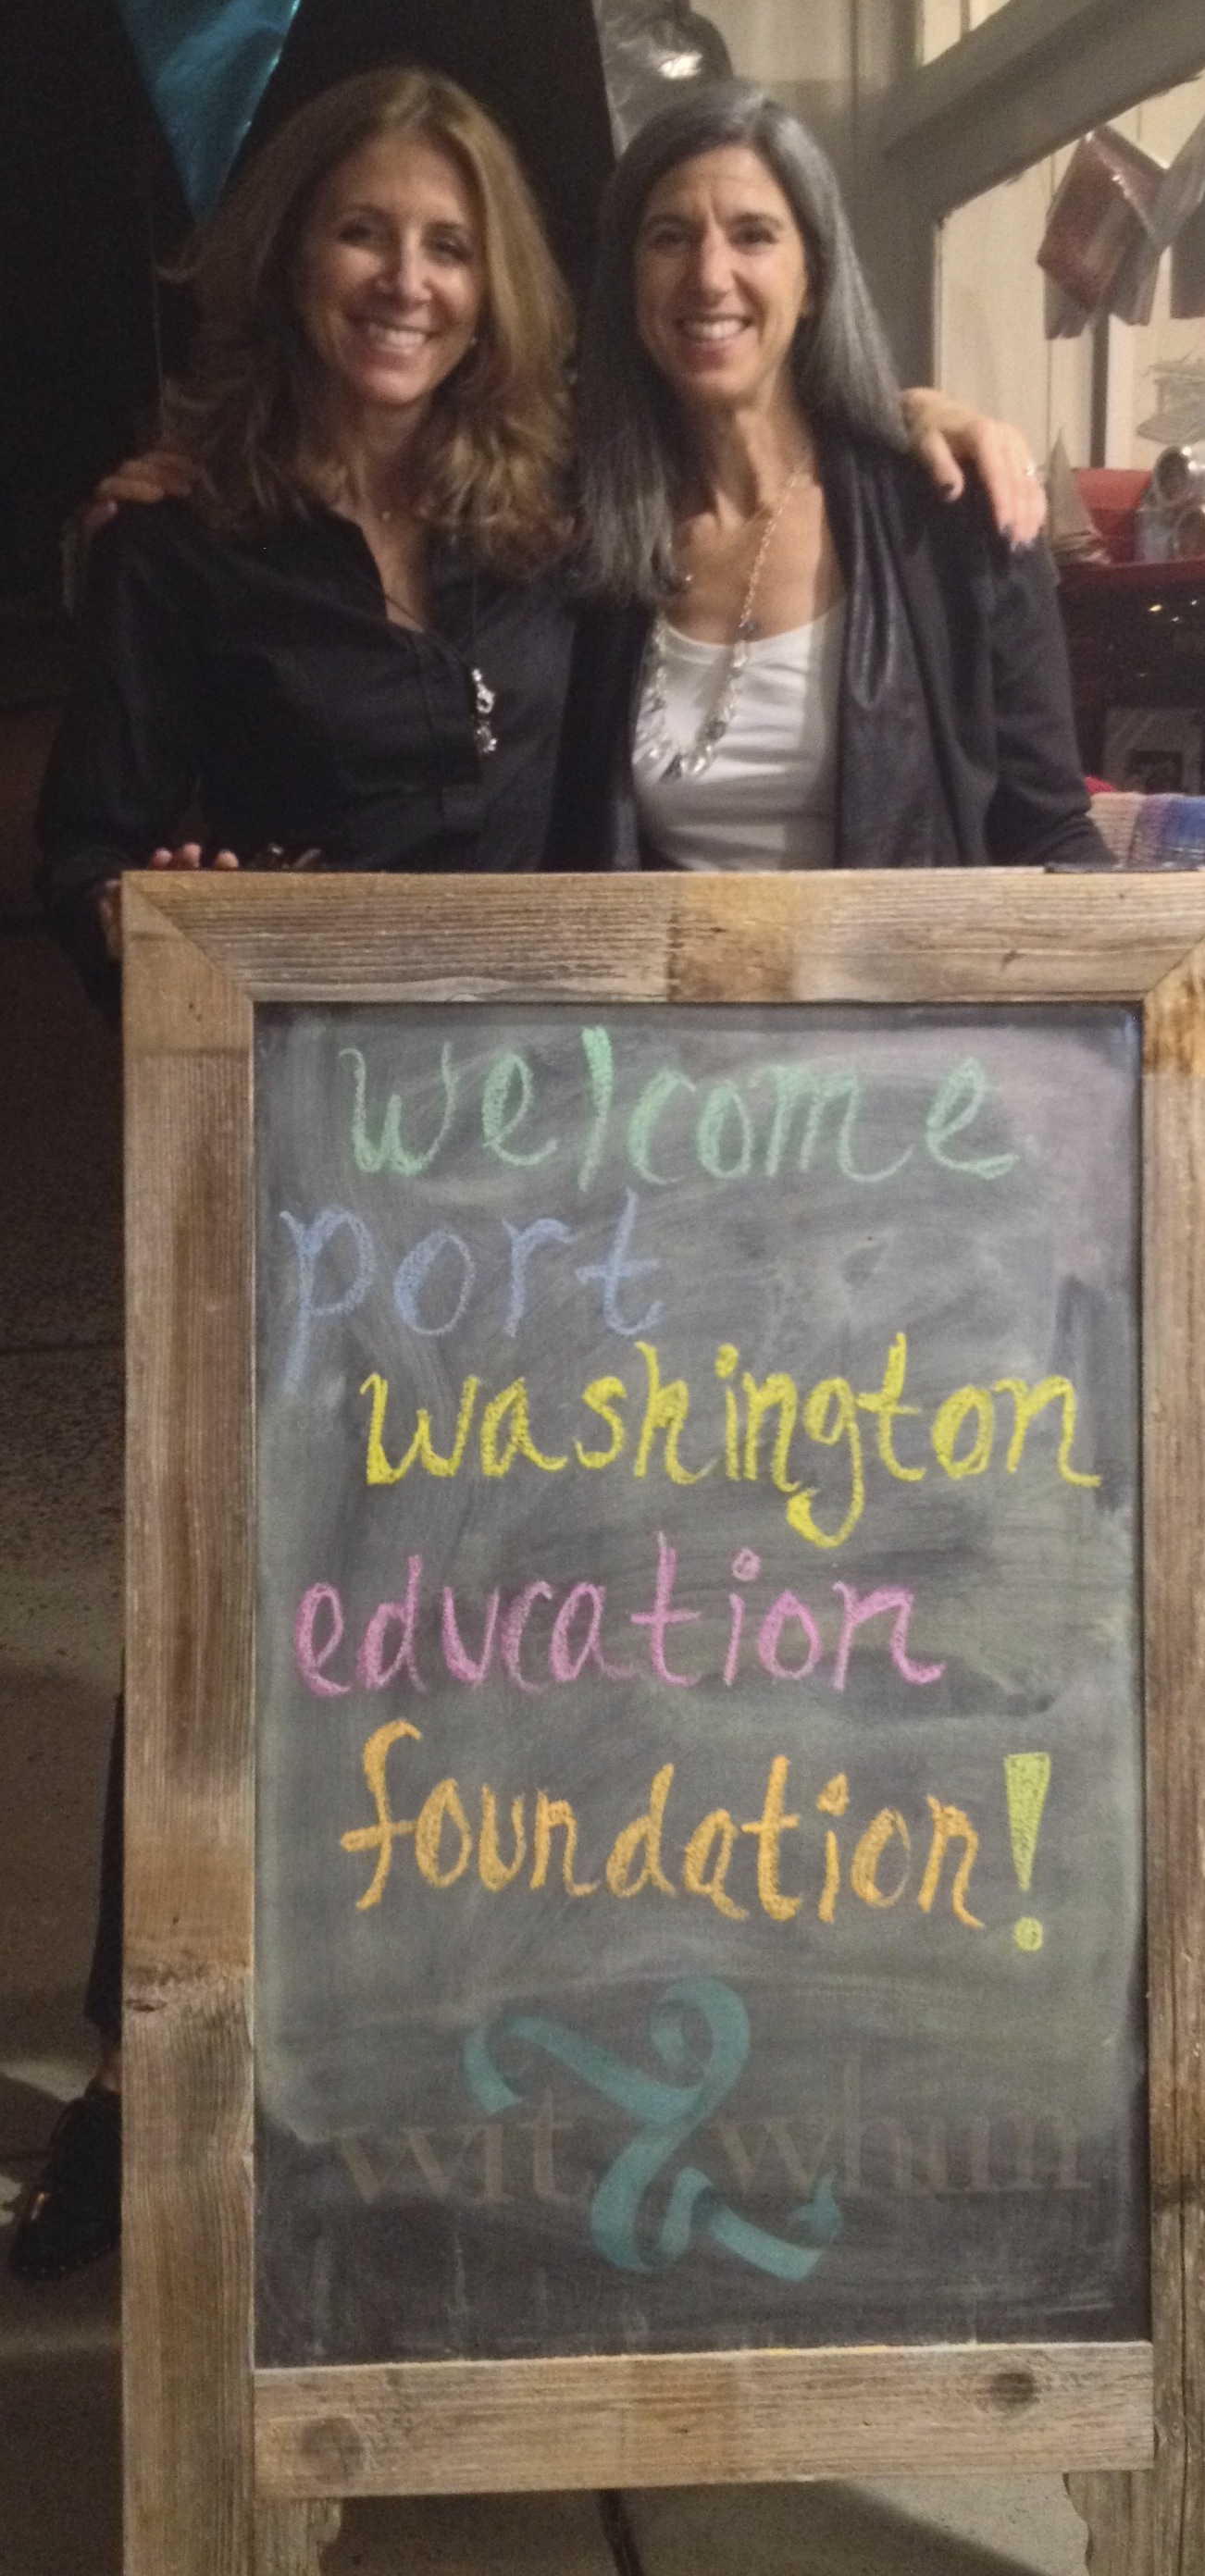 welcome
port
washington
education
foundation!
wit & whim